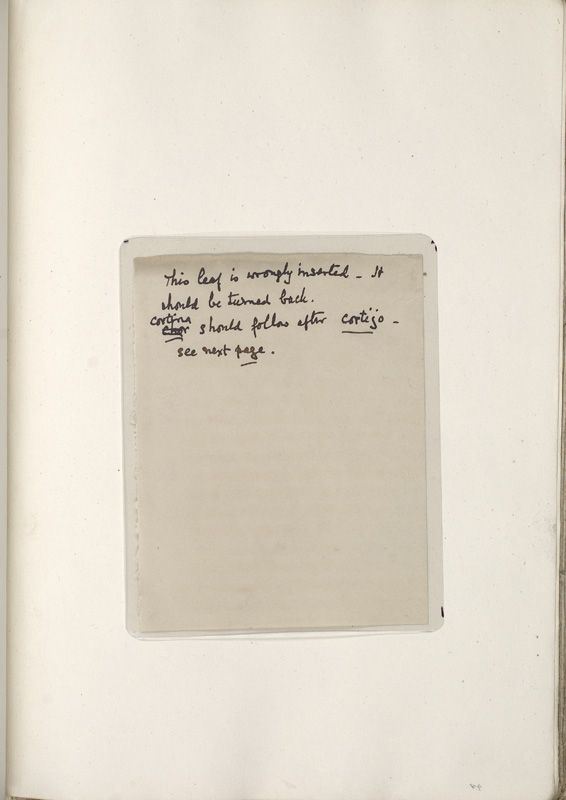 This leaf is wrongly inserted - It
should be turned back.
cortina
should follow after cortijo -
see next page.